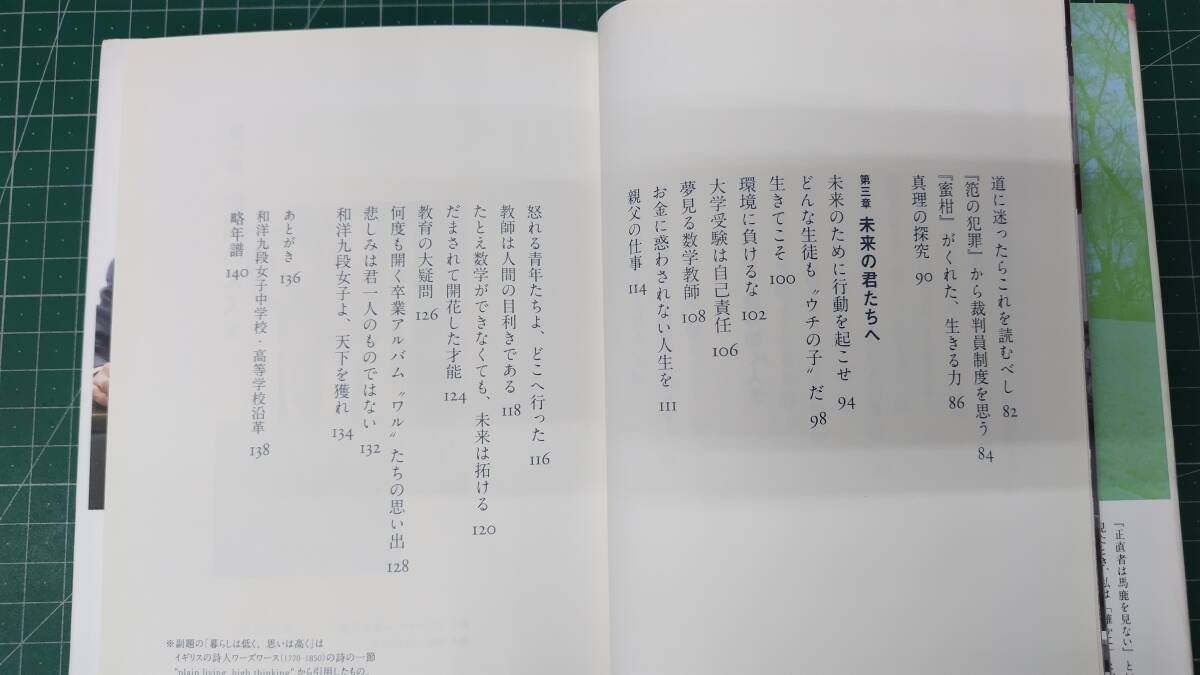 道に迷ったらこれを読むべし 82
『范の犯罪』から裁判員制度を思う 84
『蜜柑』がくれた、生きる力 86
真理の探究 90
第三章 未来の君たちへ
未来のために行動を起こせ 94
どんな生徒も〝ウチの子〟だ 98
生きてこそ 100
環境に負けるな 102
大学受験は自己責任 106
夢見る数学教師 108
お金に惑わされない人生を 111
親父の仕事 114
怒れる青年たちよ、どこへ行った 116
教師は人間の目利きである 118
たとえ数学ができなくても、未来は拓ける 120
だまされて開花した才能 124
教育の大疑問 126
何度も開く卒業アルバム〝ワル〟たちの思い出 128
悲しみは君一人のものではない 132
和洋九段女子よ、天下を獲れ 134
あとがき 136
和洋九段女子中学校・高等学校沿革 138
略年譜 140
※副題の「暮らしは低く、思いは高く」は
イギリスの詩人ワーズワース(1770-1850)の詩の一節
"plain living, high thinking"から引用したもの。
『正直者は馬鹿を見ない』と